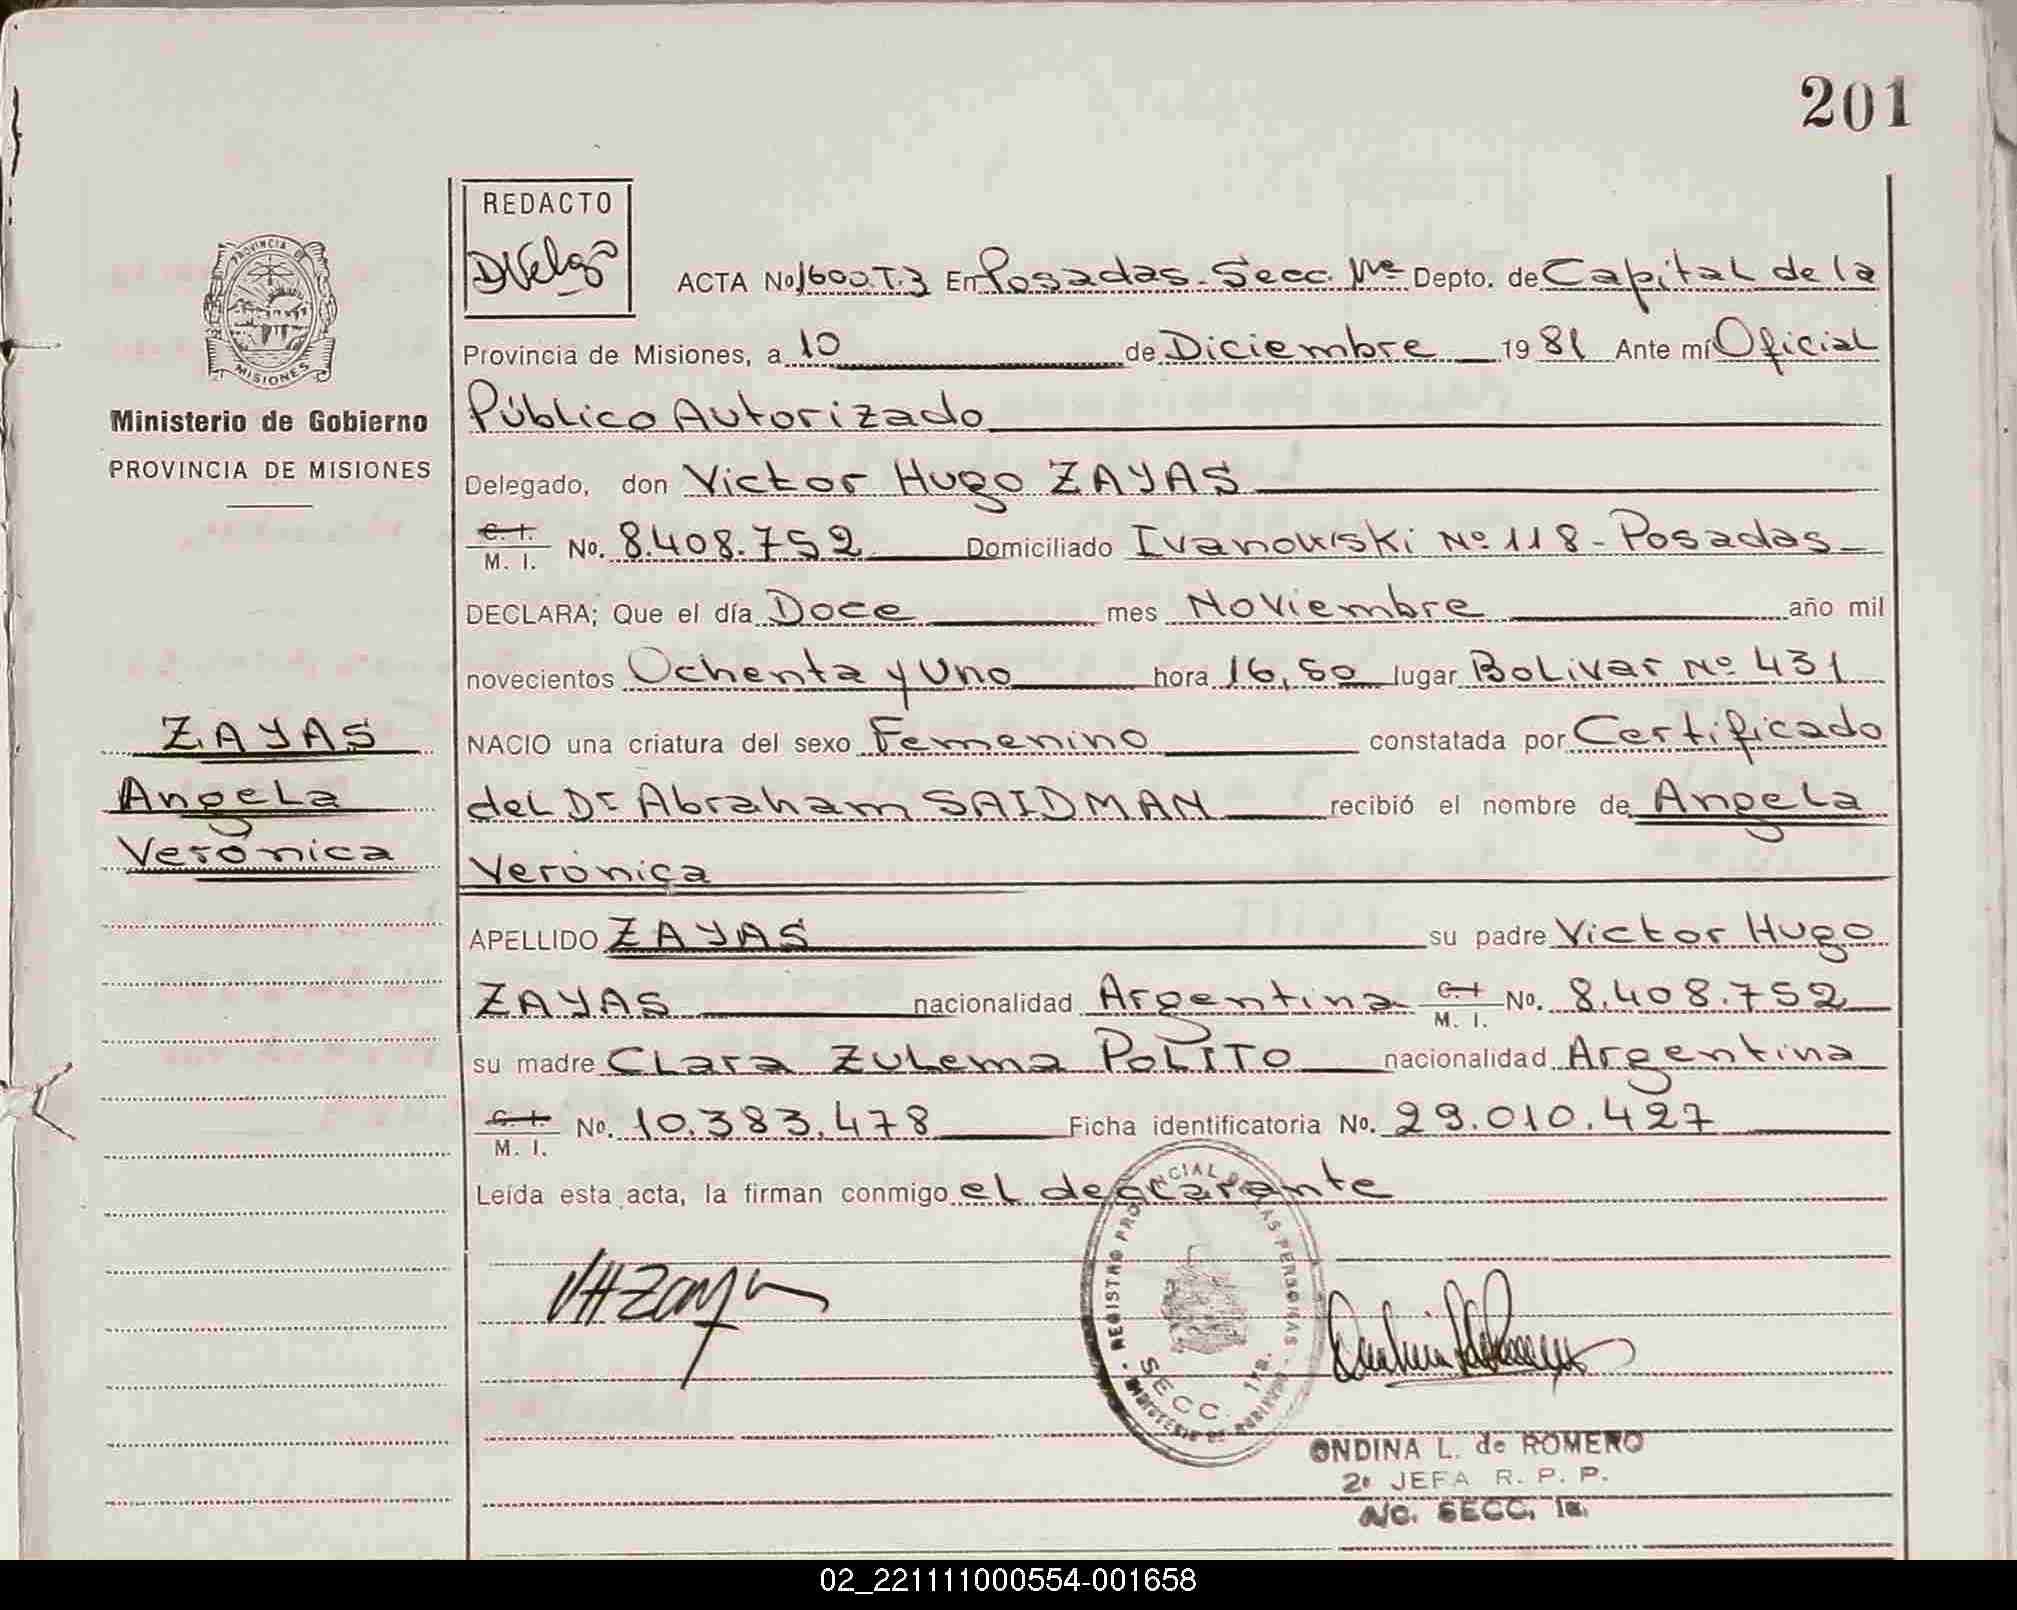 201
REDACTO
ACTA No 1600.T.3 En Posadas-Secc. 1ra Depto. de Capital de la
PROVINCIA DE
MISIONES
Provincia de Misiones, a 10 de Diciembre 1981 Ante mí Oficial
Ministerio de Gobierno
PROVINCIA DE MISIONES
Público Autorizado
Delegado, don Victor Hugo ZAYAS
C. I.
M. I. No. 8.408.752 Domiciliado Ivanowski Nº 118-Posadas
DECLARA; Que el día Doce mes Noviembre año mil
novecientos Ochenta y Uno hora 16,50 lugar Bolivar Nº 431
ZAYAS
Angela
Verónica
NACIO una criatura del sexo Femenino constatada por Certificado
del Dr Abraham SAIDMAN recibió el nombre de Angela
Verónica
APELLIDO ZAYAS su padre Victor Hugo
ZAYAS nacionalidad Argentina C.I M. I. No. 8.408.752
su madre Clara Zulema POLITO nacionalidad Argentina
C. I.
M. I. No. 10.383.478 Ficha identificatoria No. 29.010.427
Leída esta acta, la firman conmigo el declarante
VHZayas
REGISTRO PROVINCIAL DE LAS PERSONAS
SECC. 1ra.
MINISTERIO DE GOBIERNO
ONDINA L. de ROMERO
2ª JEFA R. P. P.
A/C. SECC. 1a.
02_221111000554-001658